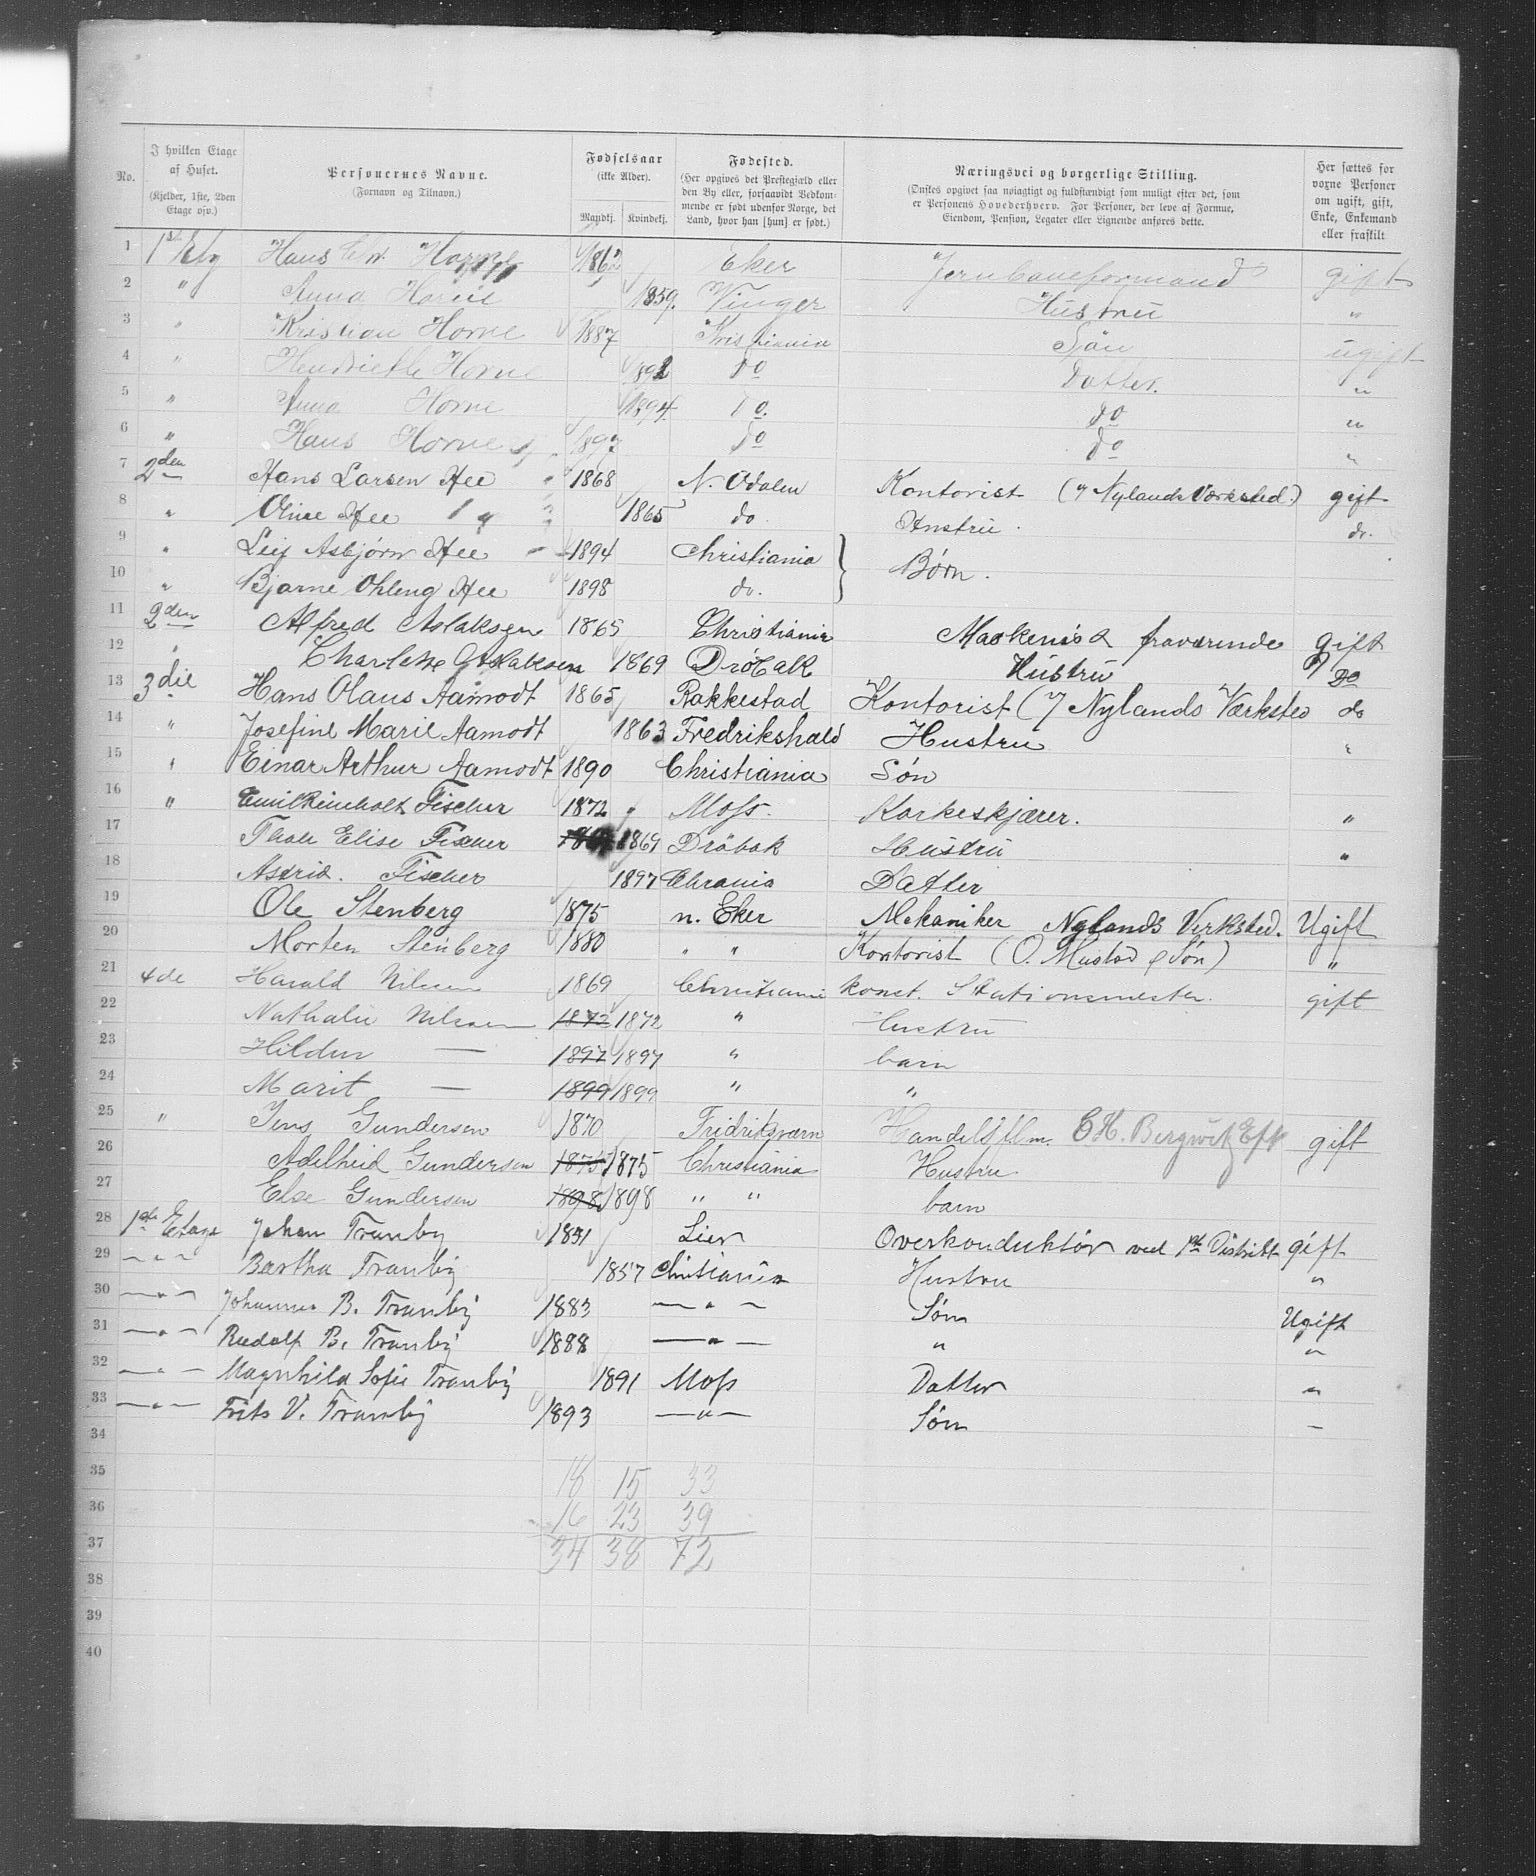 No. I hvilken Etage af Huset. (Kjelder, 1ste, 2den Etage osv.) Personernes Navne. (Fornavn og Tilnavn.) Fødselsaar (ikke Alder). Mandkj. Kvindekj. Fødested. (Her opgives det Prestegjæld eller den By eller, forsaavidt Vedkommende er født udenfor Norge, det Land, hvor han [hun] er født.) Næringsvei og borgerlige Stilling. (Ønskes opgivet saa nøiagtigt og fuldstændigt som muligt efter det, som er Personens Hovederhverv. For Personer, der leve af Formue, Eiendom, Pension, Legater eller Lignende anføres dette. Her sættes for voxne Personer om ugift, gift, Enke, Enkemand eller fraskilt
1 1st Etg Hans Chr. Horne 1862 Eker Jernbaneformand gift
2 " Anna Horne 1859. Vinger Hustru "
3 " Kristian Horne 1887 Kristiania Søn ugift
4 " Henriette Horne 1892 do Datter. "
5 " Anna Horne 1894 do. do "
6 " Hans Horne 1897 do do "
7 2den Hans Larsen Hee 1868 N. Odalen Kontorist (% Nylands Værksted.) gift
8 " Oline Hee 1865 do Hustru. do.
9 " Leif Asbjørn Hee 1894 Christiania } Børn.
10 " Bjarne Ohleng Hee 1898 do.
11 2den Alfred Aslaksen 1865 Christiania Maskenist fraværende gift
12 " Charlotte Aslaksen 1869 Dröbak Hustru Do
13 3die Hans Olaus Aamodt 1865 Rakkestad Kontorist (% Nylands Værksted do
14 " Josefine Marie Aamodt 1863 Fredrikshald Hustru "
15 " Einar Arthur Aamodt 1890 Christiania Søn
16 " Emil Reinholt Fischer 1872 Moss. Korkeskjærer. "
17 Elise Fischer 1869 Dröbak Hustru "
18 Astrid. Fischer 1897 Chrania Datter
19 Ole Stenberg 1875 n. Eker Mekaniker Nylands Verksted. Ugift
20 Morten Stenberg 1880 " " Kontorist (O. Mustad & Søn) "
21 4de Harald Nilsen 1869 Christiania konst. Stationsmester. gift
22 Nathalie Nilsen 1872 1872 " Hustru
23 Hildur — 1897 1897 " barn
24 Marit — 1899 1899 " "
25 " Jens Gundersen 1870 Fridriksværn Handelsflm. C H. Bergwitz Eftf gift
26 Adelheid Gundersen 1875 1875 Christiania Hustru
27 Else Gundersen 1898 1898 " " barn
28 1ste Etage Johan Tranby 1851 Lier Overkonduktør ved 1ste Distrikt gift
29 — " — Bertha Tranby 1857 Christiania Hustru "
30 — " — Johannes B. Tranby 1883 — " — Søn Ugift
31 — " — Rudolf B. Tranby 1888 — " — " "
32 — " — Magnhild Sofie Tranby 1891 Moss Datter "
33 — " — Frits V. Tranby 1893 — " — Søn —
34
35 18 15 33
36 16 23 39
37 34 38 72
38
39
40